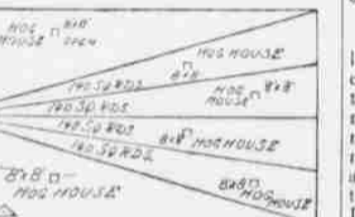 HOG HOUSE 8x8' OPEN
HOG HOUSE
8x8
140 SQ RDS
HOG HOUSE 8x8
140 SQ RDS
140 SQ RDS
8x8 HOG HOUSE
140 SQ RDS
8x8
HOG HOUSE
8x8
HOG HOUSE